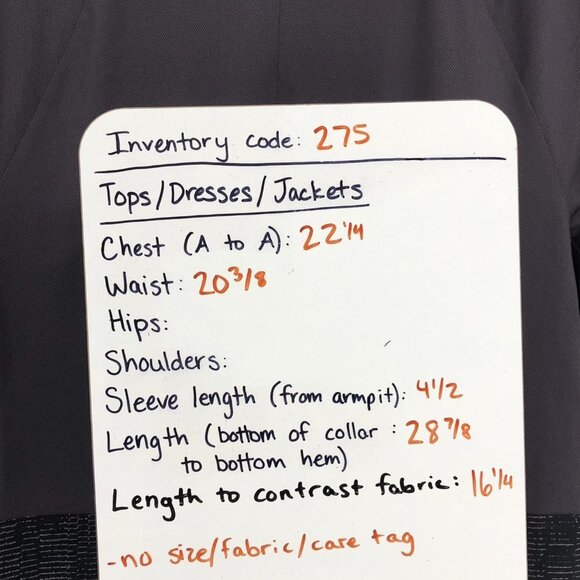 Inventory code: 275
Tops/Dresses/Jackets
Chest (A to A): 22 1/4
Waist: 20 3/8
Hips:
Shoulders:
Sleeve length (from armpit): 4 1/2
Length (bottom of collar : 28 7/8
to bottom hem)
Length to contrast fabric: 16 1/4
-no size/fabric/care tag